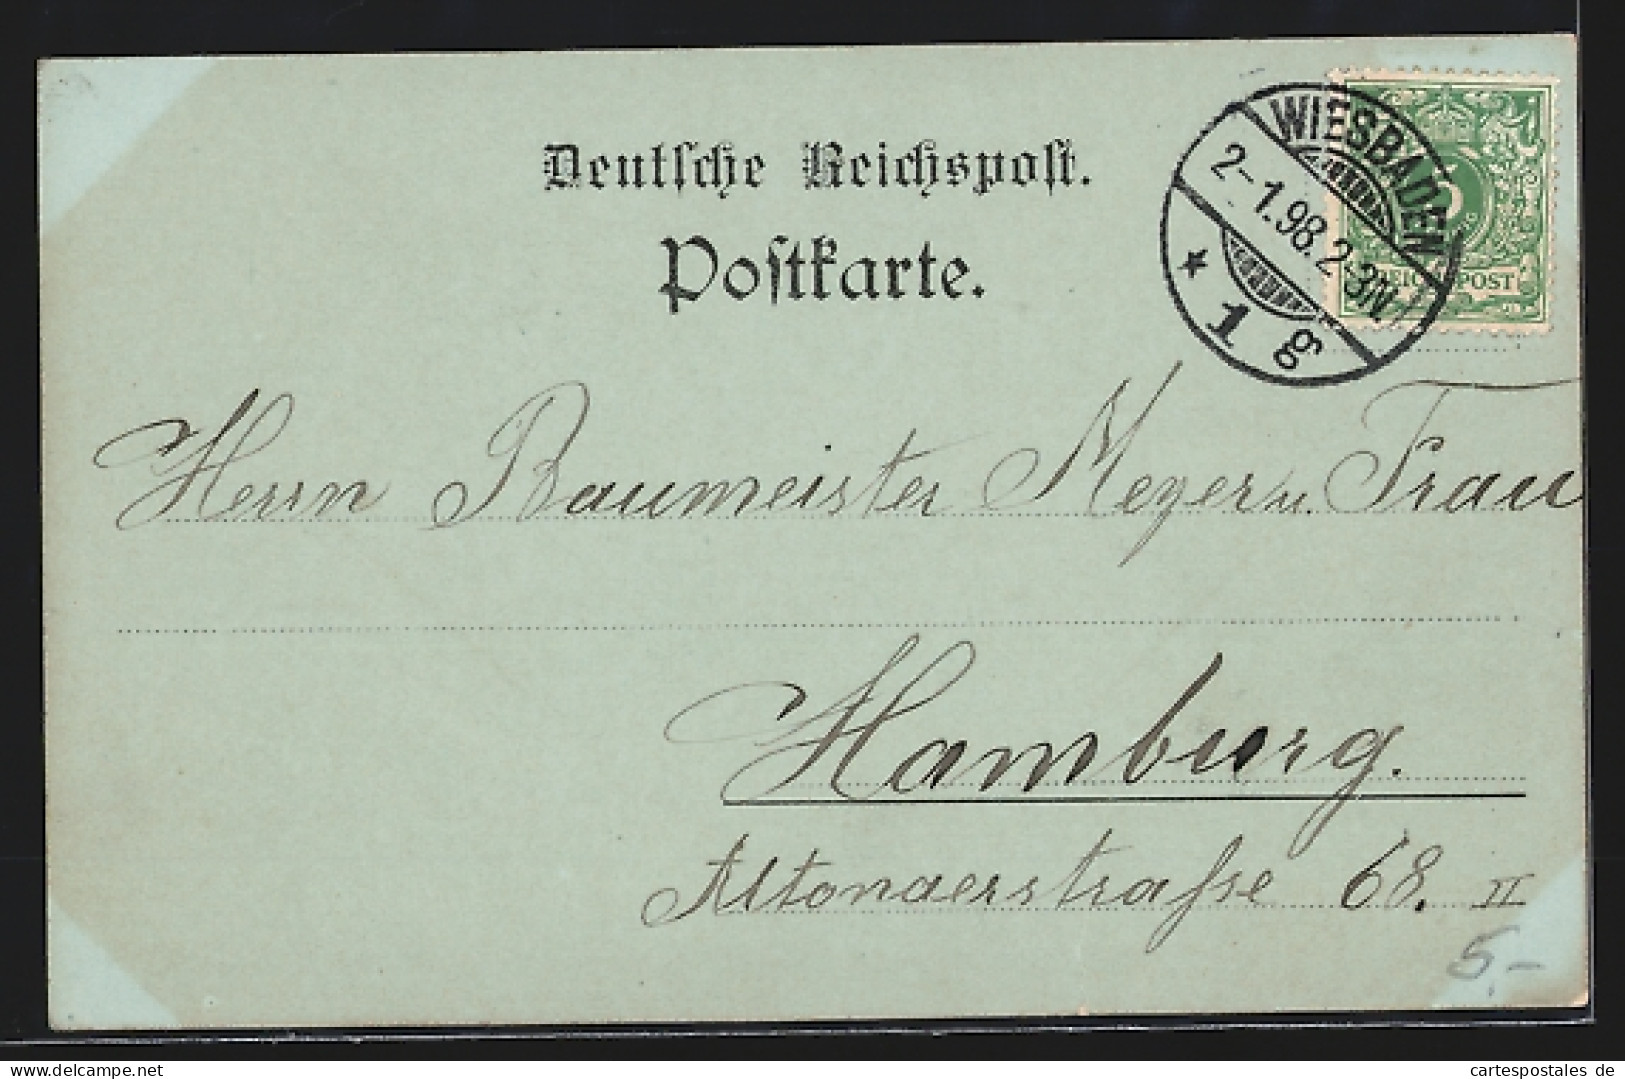 Deutsche Reichspost.
Postkarte.
WIESBADEN
2-1.98.2-3N.
* 1 g
REICHSPOST
Herrn Baumeister Meyer u. Frau
Hamburg.
Altonaerstraße 68. II
5,-
www.delcampe.net
cartespostales de